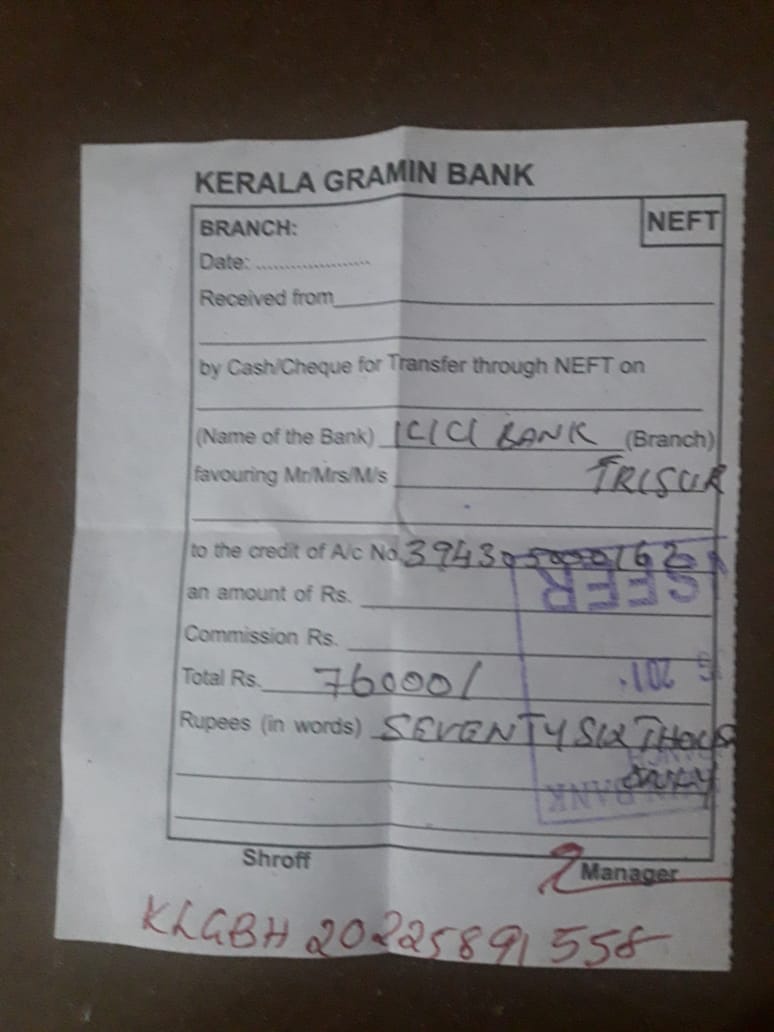 KERALA GRAMIN BANK
NEFT
BRANCH:
Date: ....................
Received from
by Cash/Cheque for Transfer through NEFT on
(Name of the Bank) ICICI BANK (Branch)
favouring Mr/Mrs/M/s TRISUR
to the credit of A/c No. 394305000162
an amount of Rs.
Commission Rs.
Total Rs. 76000/
Rupees (in words) SEVENTY SIX THOUS
ONLY
BANK
Shroff
Manager
KLGBH 20225891558